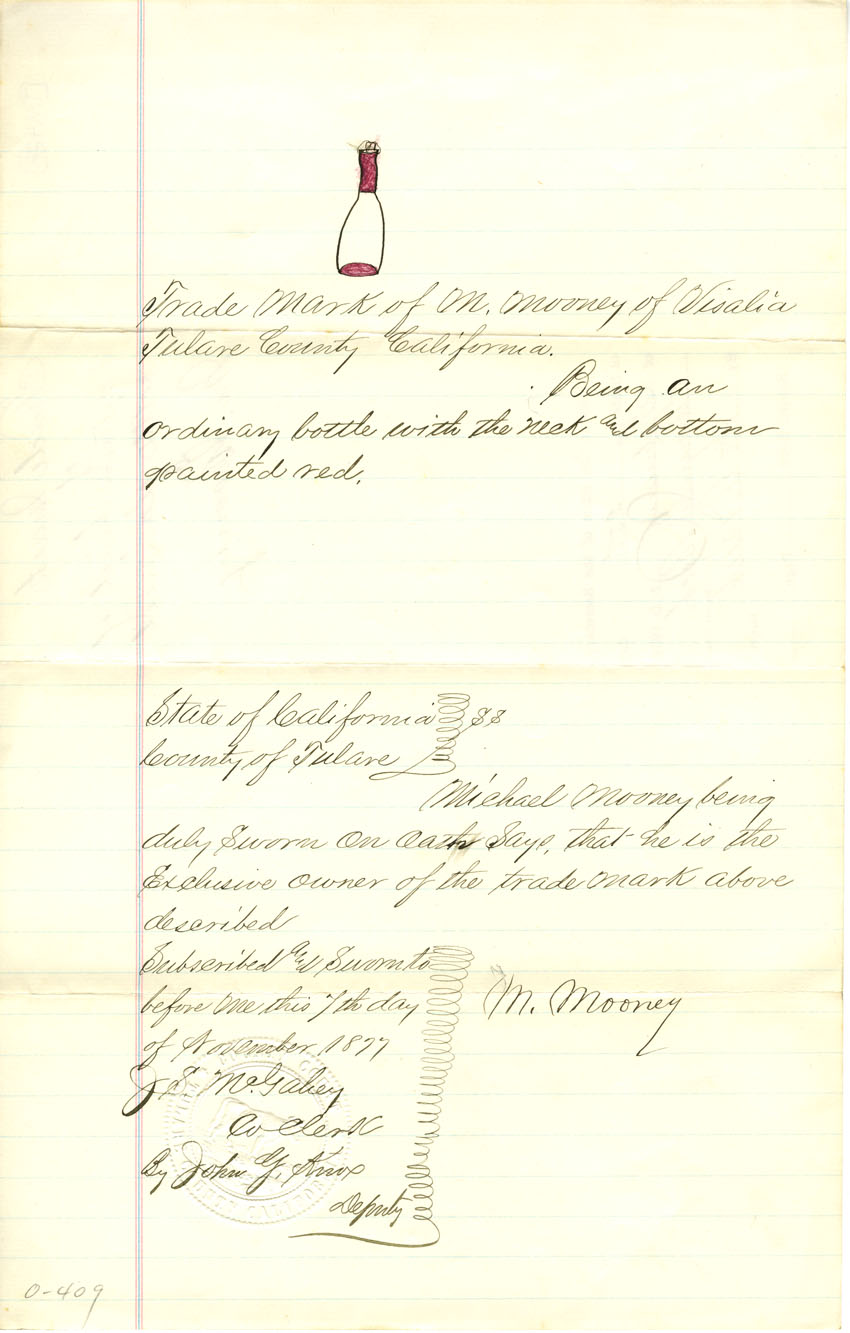 Trade Mark of M. Mooney of Visalia
Tulare County California.
Being an
ordinary bottle with the neck and bottom
painted red.
State of California SS
County of Tulare
Michael Mooney being
duly Sworn on Oath Says, that he is the
Exclusive owner of the trade Mark above
described
Subscribed and Sworn to
before me this 7th day
of November 1877
M. Mooney
J E McGahey
Co Clerk
By John G. Knox
Deputy
0-409